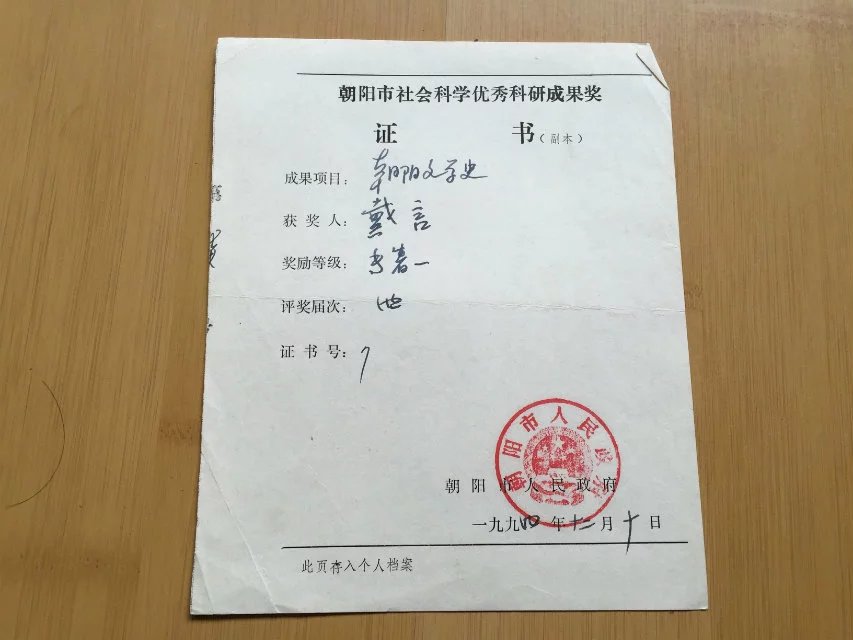 朝阳市社会科学优秀科研成果奖
证 书（副本）
成果项目：朝阳文学史
获奖人：戴言
奖励等级：专著一
评奖届次：四
证书号：7
朝阳市人民政府
朝阳市人民政府
一九九四年十二月十日
此页存入个人档案